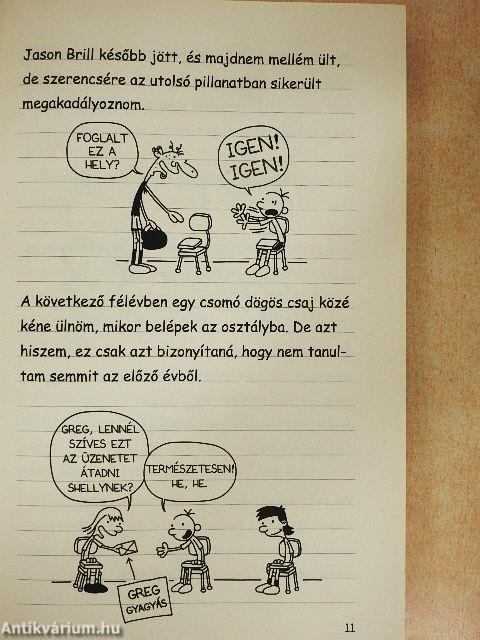 Jason Brill később jött, és majdnem mellém ült,
de szerencsére az utolsó pillanatban sikerült
megakadályoznom.
FOGLALT
EZ A
HELY?
IGEN!
IGEN!
A következő félévben egy csomó dögös csaj közé
kéne ülnöm, mikor belépek az osztályba. De azt
hiszem, ez csak azt bizonyítaná, hogy nem tanul-
tam semmit az előző évből.
GREG, LENNÉL
SZÍVES EZT
AZ ÜZENETET
ÁTADNI
SHELLYNEK?
TERMÉSZETESEN!
HE, HE.
GREG
GYAGYÁS
11
Antikvárium.hu